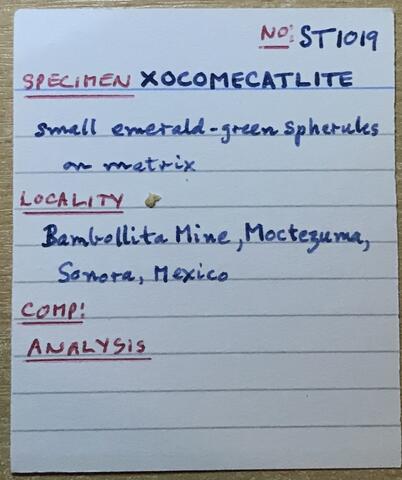 NO: ST1019
SPECIMEN XOCOMECATLITE
small emerald-green spherules
on matrix
LOCALITY
Bambollita Mine, Moctezuma,
Sonora, Mexico
COMP:
ANALYSIS